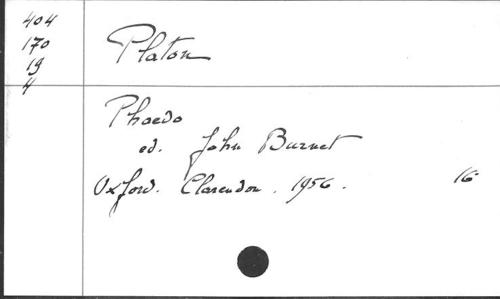 404
170
19
4
Platon
Phaedo
ed. John Burnet
Oxford. Clarendon. 1956. 16